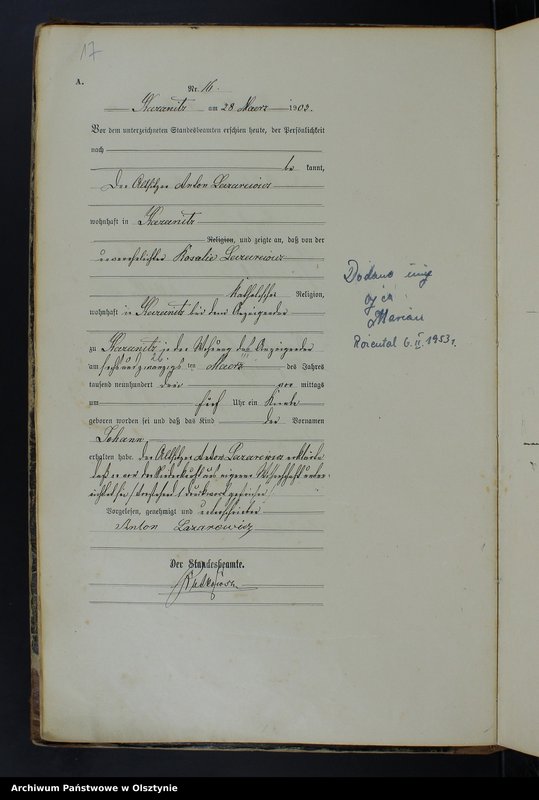 17
A.
Nr. 16.
Kazanitz am 28 Maerz 1903.
Vor dem unterzeichneten Standesbeamten erschien heute, der Persönlichkeit
nach
be kannt,
Der Altsitzer Anton Lazarewicz
wohnhaft in Kazanitz
Religion, und zeigte an, daß von der
unverehelichten Rosalie Lazarewicz
katholischer Religion,
wohnhaft in Kazanitz bei dem Anzeigenden
zu Kazanitz in der Wohnung des Anzeigenden
am sechsundzwanzigsten Maerz des Jahres
tausend neunhundert drei vor mittags
um fünf Uhr ein Knabe
geboren worden sei und daß das Kind den Vornamen
Johann
erhalten habe. Der Altsitzer Anton Lazarewicz erklärte
daß er von der Niederkunft aus eigener Wissenschaft unter-
richtet sei, Vorstehend 1 Druckwort gestrichen
Vorgelesen, genehmigt und unterschrieben
Anton Lazarewicz
Der Standesbeamte.
Dodano imię
ojca
Marian
Rożental 6.II.1953 r.
Archiwum Państwowe w Olsztynie